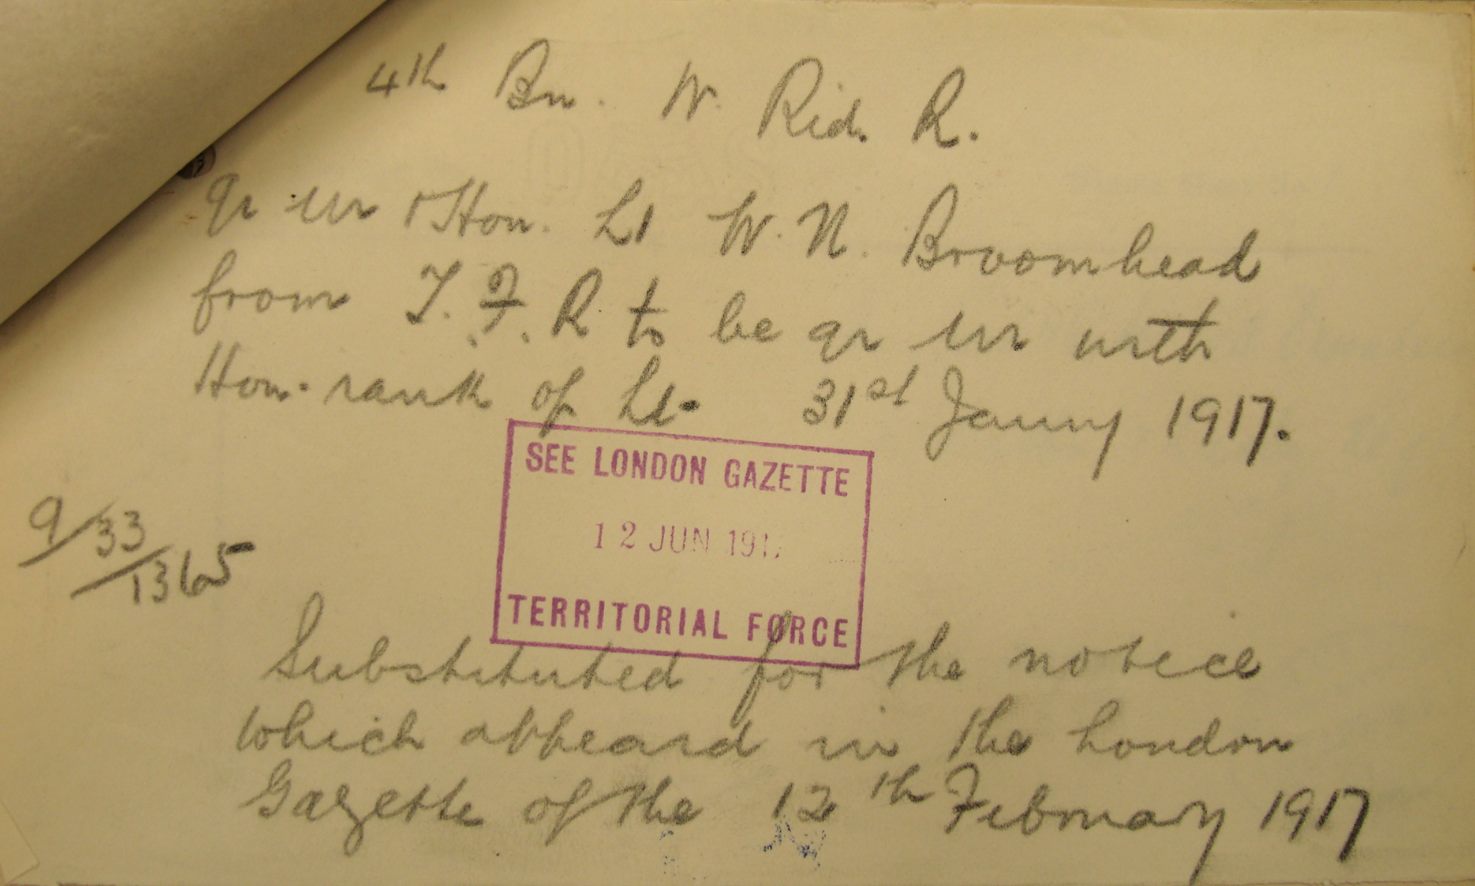 4th Bn. W. Rid. R.
qr mr & Hon. Lt W. N. Broomhead
from T. F. R to be qr mr with
Hon. rank of Lt. 31st Janry 1917.
SEE LONDON GAZETTE
12 JUN 191
TERRITORIAL FORCE
9/33/1365
Substituted for the notice
which appeard in the London
Gazette of the 12th February 1917